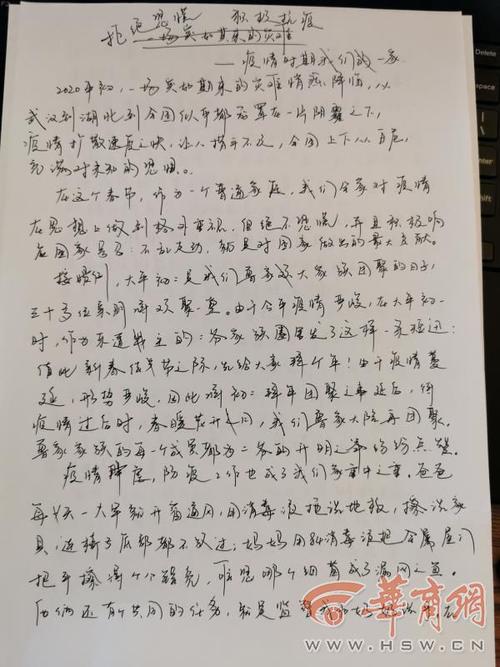 拒绝恐慌 积极抗疫
一场突如其来的灾难
——疫情时期我们的一家
2020年初,一场突如期来的灾难悄然降临,从
武汉到湖北到全国似乎都笼罩在一片阴霾之下,
疫情扩散速度之快,让人措手不及,全国上下人人自危,
充满对未知的恐惧。
在这个春节,作为一个普通家庭,我们全家对疫情
在思想上做到格外重视,但绝不恐慌,并且积极响
应国家号召:不乱走动,就是对国家做出的最大贡献。
按惯例,大年初二是我们曹家族大家族团聚的日子,
三十多位亲朋济济欢聚一堂。由于今年疫情严峻,在大年初一
时,作为东道主的二爷家族圈里发了这样一条短讯:
值此新春佳节之际,先给大家拜个年!由于疫情蔓
延,形势严峻,因此将初二拜年团聚之事延后,待
疫情过后时,春暖花开之间,我们曹家大院再团聚。
曹家家族的每一个成员都为二爷的开明之举纷纷点赞。
疫情肆虐,防疫工作也成了我们家重中之重。爸爸
每天一大早就开窗通风,用消毒液拖洗地板,擦洗家
具,连椅子底部都不放过;妈妈用84消毒液把金属屋门
把手擦得个个锃亮,唯恐哪个细菌成了漏网之鱼。
他俩还有个共同的任务,就是监督我和
华商网
WWW.HSW.CN